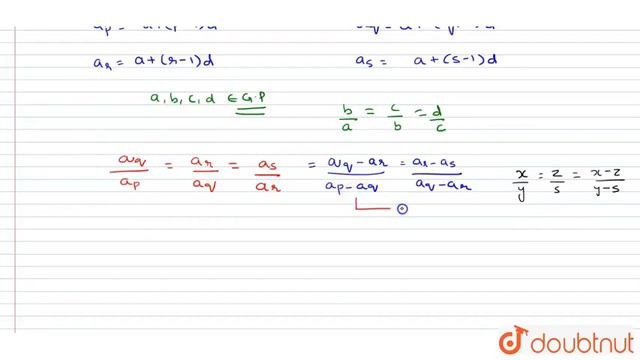 aᵣ = a+(r-1)d    aₛ = a+(s-1)d
a, b, c, d ∈ G.P    b/a = c/b = d/c
a_q/a_p = a_r/a_q = a_s/a_r = (a_q-a_r)/(a_p-a_q) = (a_r-a_s)/(a_q-a_r)    x/y = z/s = (x-z)/(y-s)
doubtnut